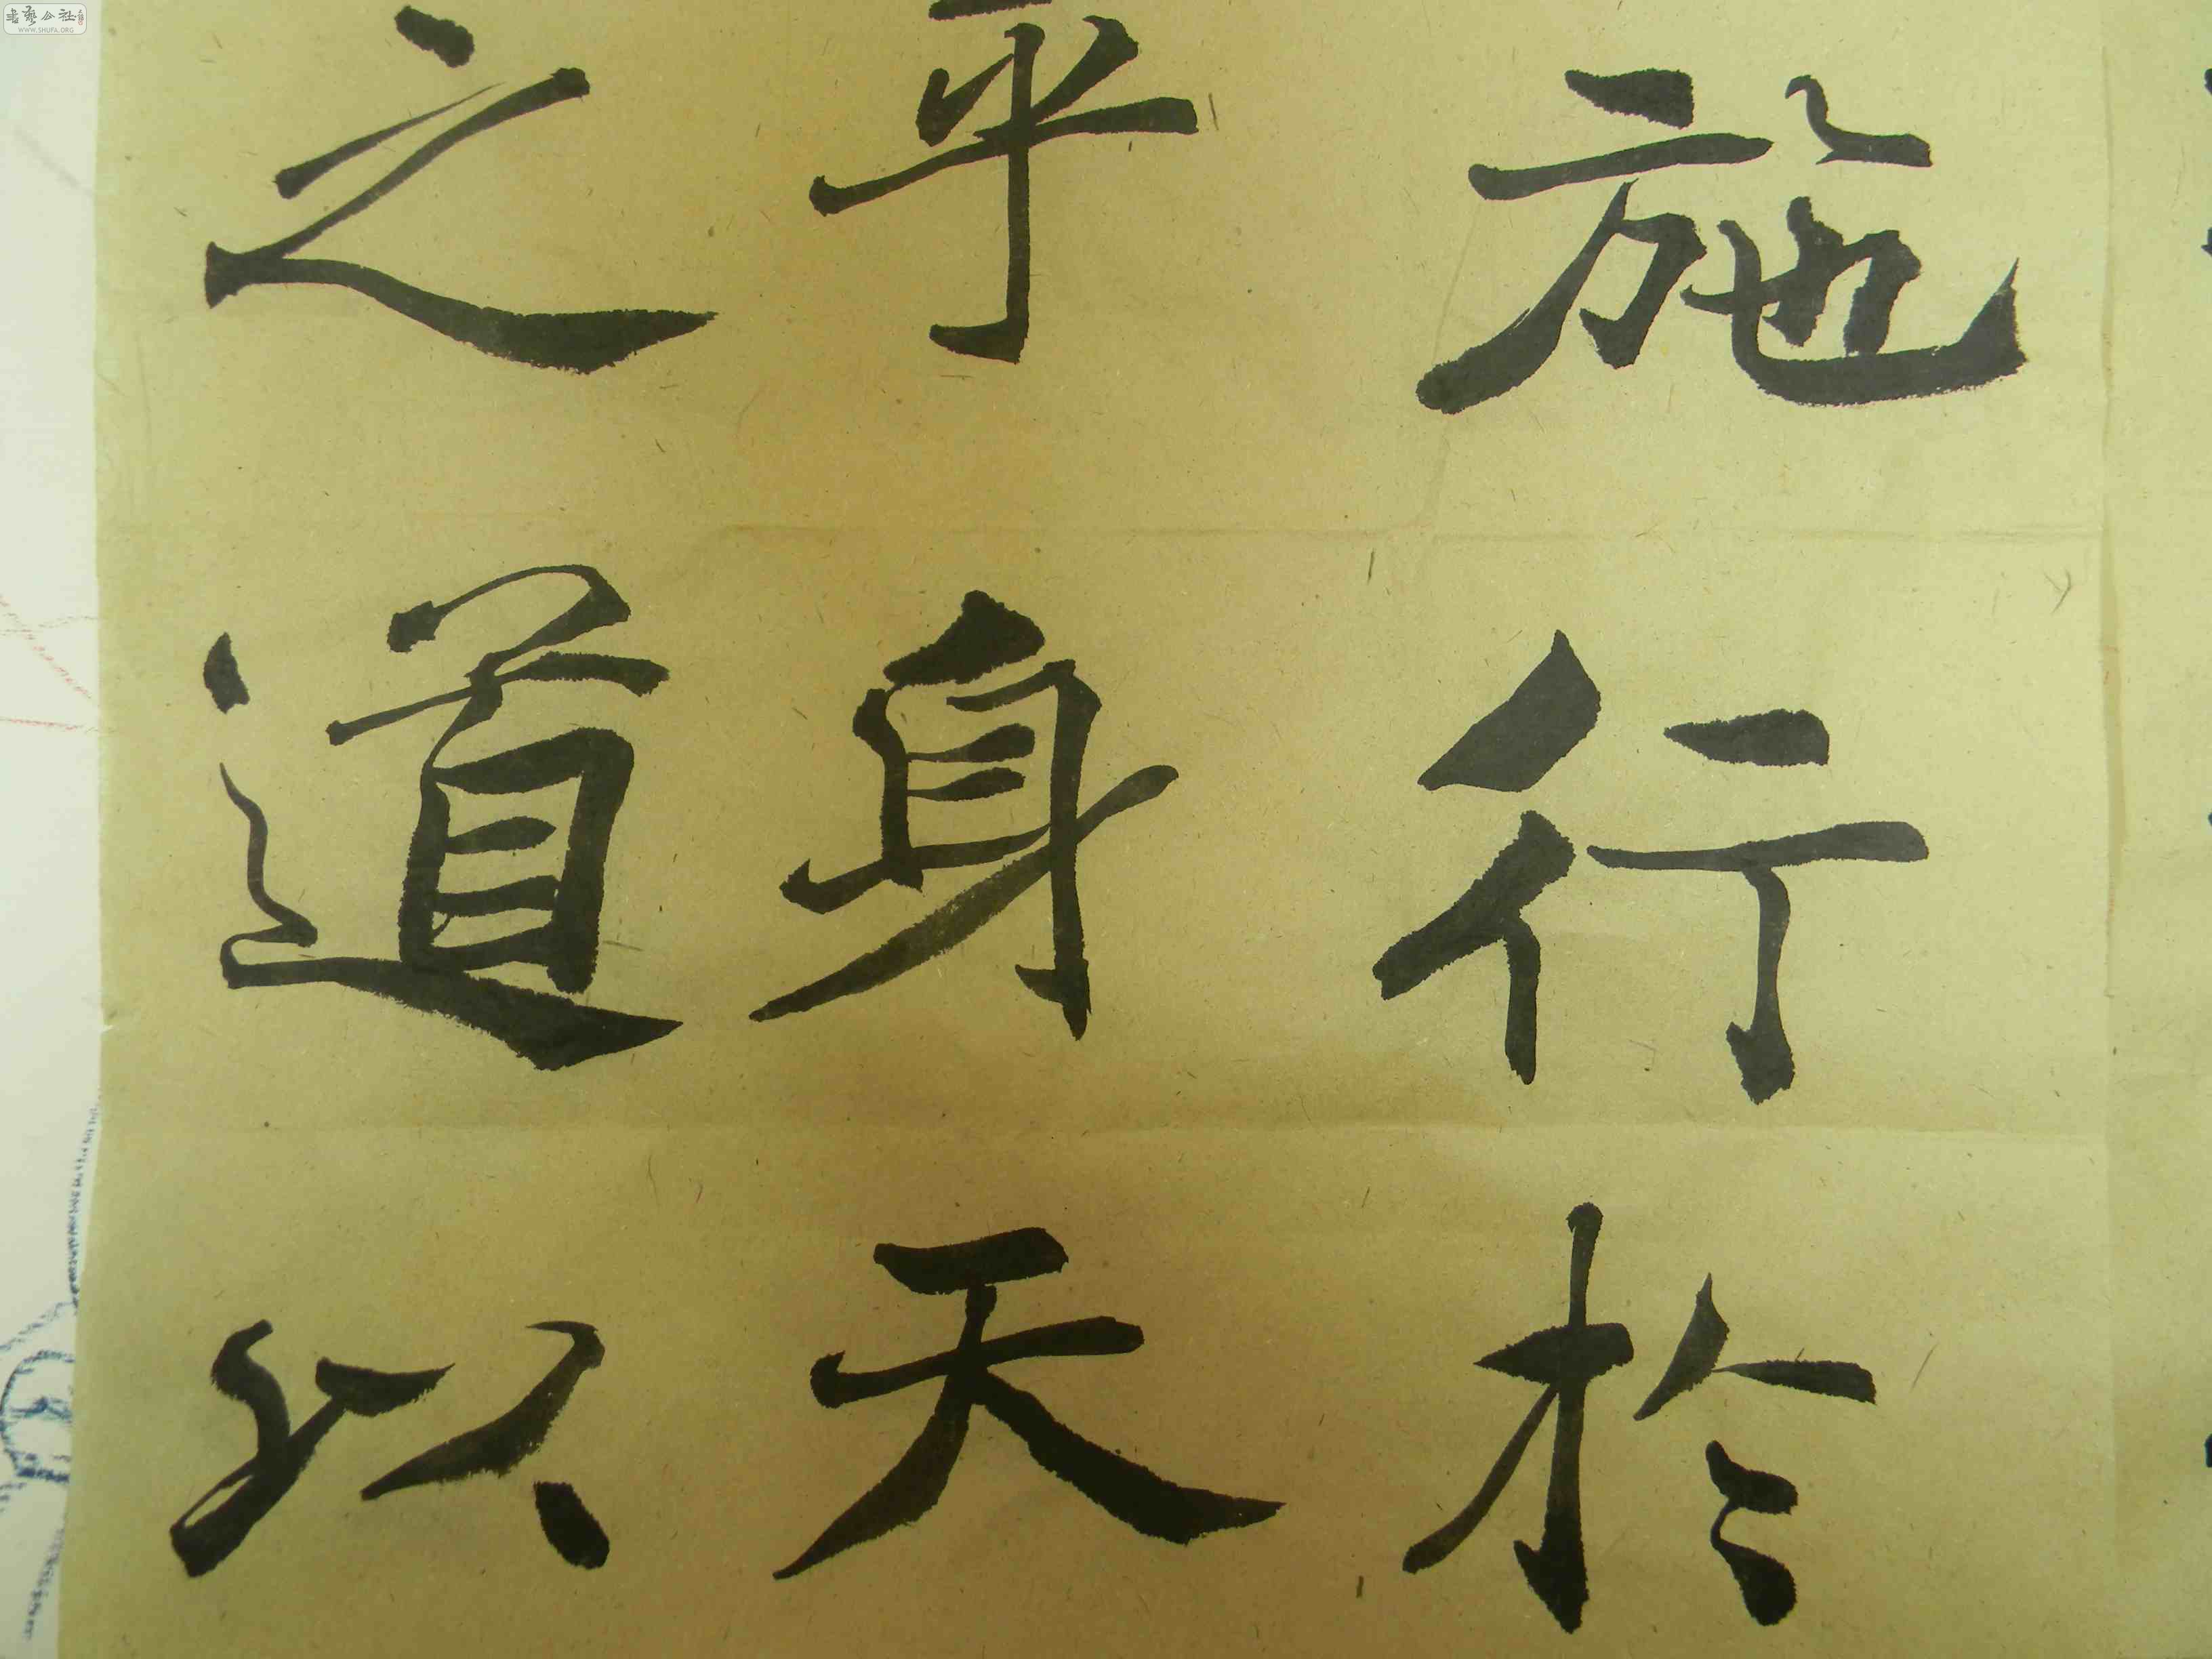 施行於
乎身天
之道以
書藝公社
WWW.SHUFA.ORG